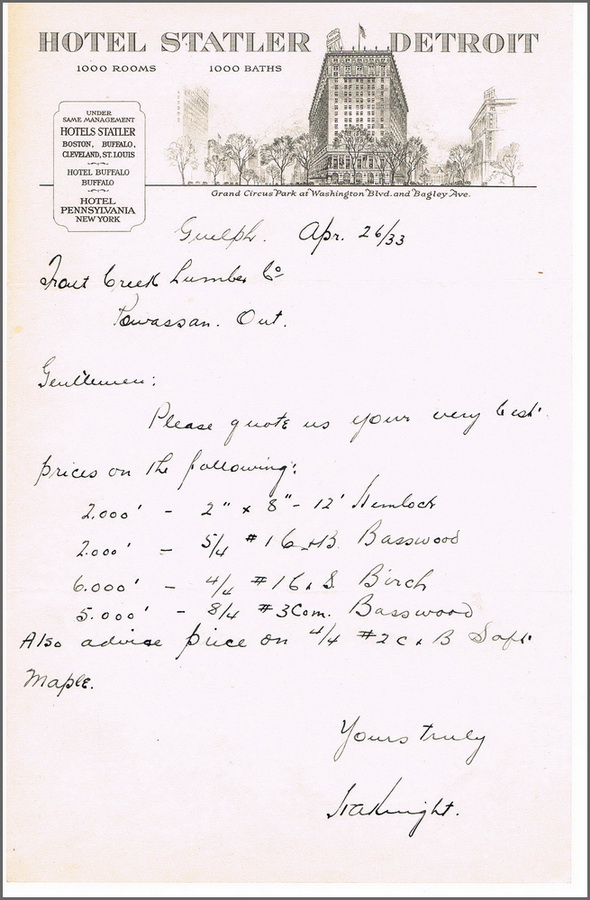 HOTEL STATLER DETROIT
1000 ROOMS 1000 BATHS
UNDER
SAME MANAGEMENT
HOTELS STATLER
BOSTON, BUFFALO,
CLEVELAND, ST. LOUIS
HOTEL BUFFALO
BUFFALO
HOTEL
PENNSYLVANIA
NEW YORK
Grand Circus Park at Washington Blvd. and Bagley Ave.
Guelph. Apr. 26/33
Trout Creek Lumber Co
Powassan. Ont.
Gentlemen:
Please quote us your very best
prices on the following:
2.000' - 2" x 8" - 12' Hemlock
2.000' - 5/4 #1 C B Basswood
6.000' - 4/4 #1 C & B Birch
5.000' - 8/4 #3 Com. Basswood
Also advise price on 4/4 #2 C & B Soft
Maple.
Yours truly
Knight.